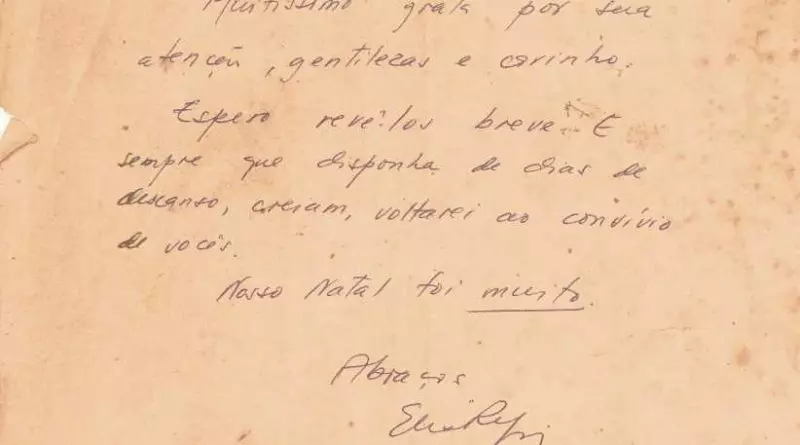 Muitíssimo grata por sua
atenção, gentilezas e carinho.
Espero revê-los breve. E
sempre que disponha de dias de
descanso, creiam, voltarei ao convívio
de vocês.
Nosso Natal foi muito.
Abraços